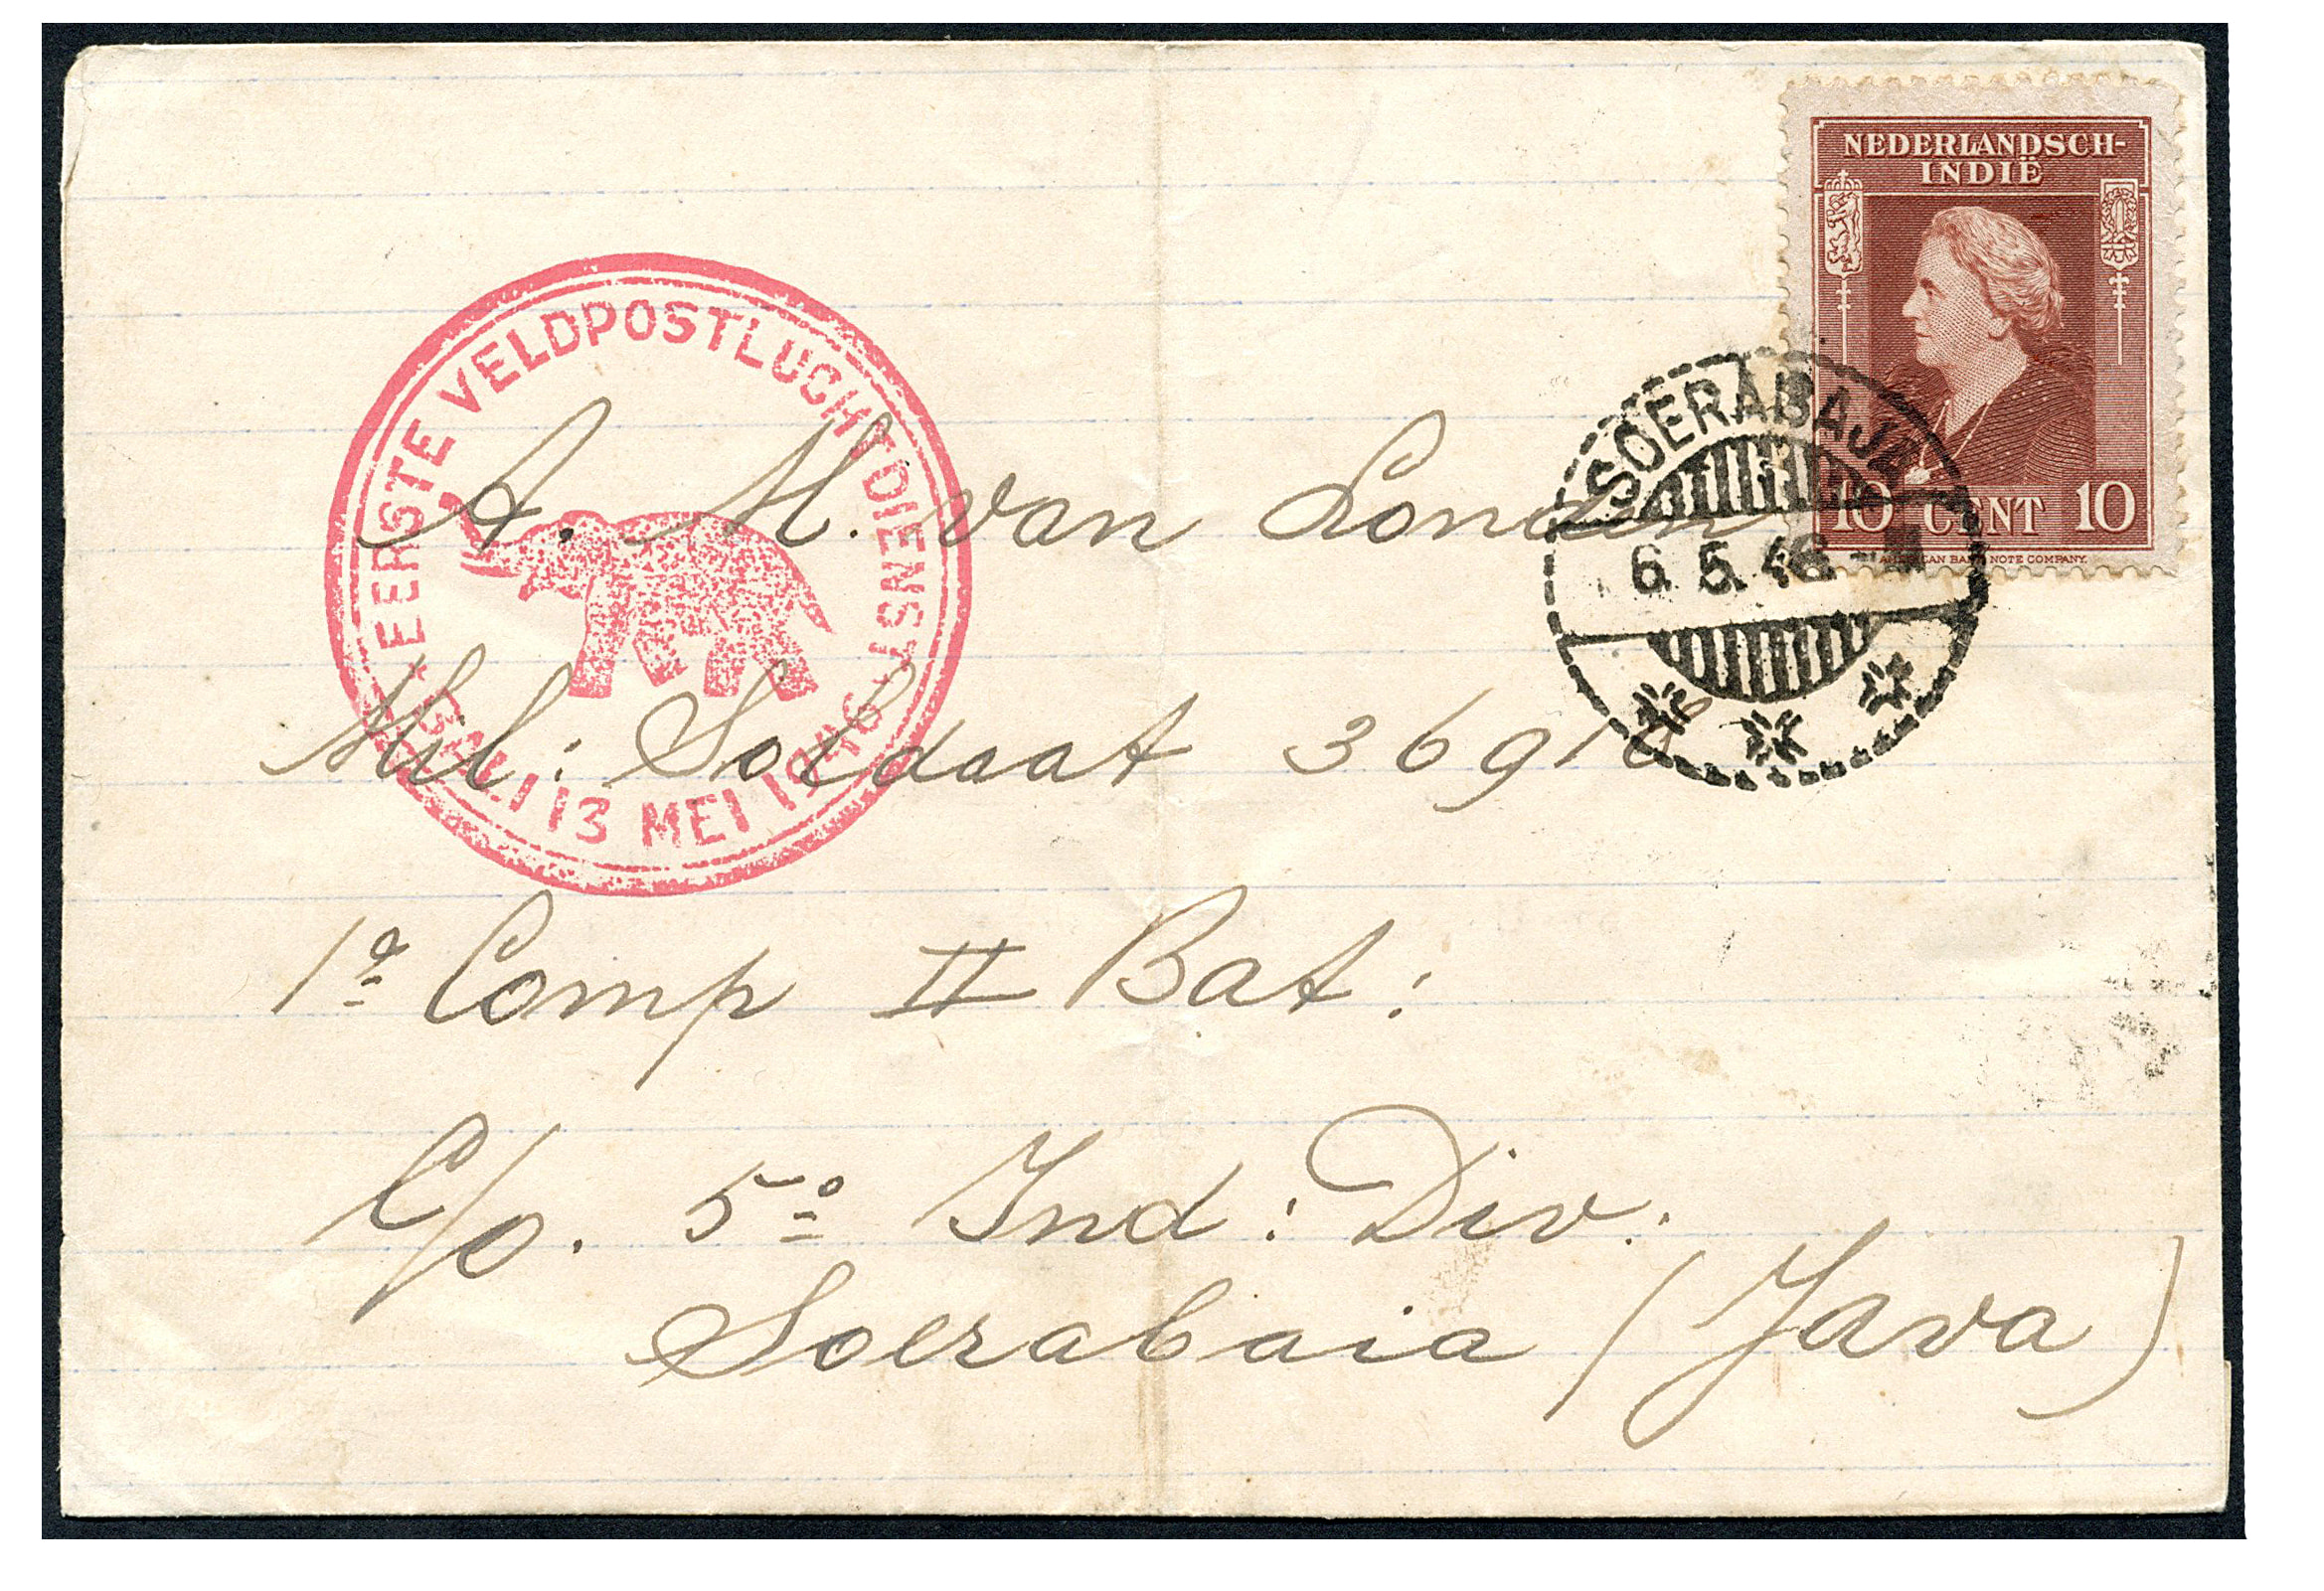 NEDERLANDSCH-
INDIË
10 CENT 10
AMERICAN BANK NOTE COMPANY.
SOERABAJA
6.5.46.-
EERSTE VELDPOSTLUCHTDIENST
BALI 13 MEI 1946
A. M. van Londen
Mil: Soldaat 36918
1e Comp II Bat:
C/o. 5e Ind: Div.
Soerabaia (Java)